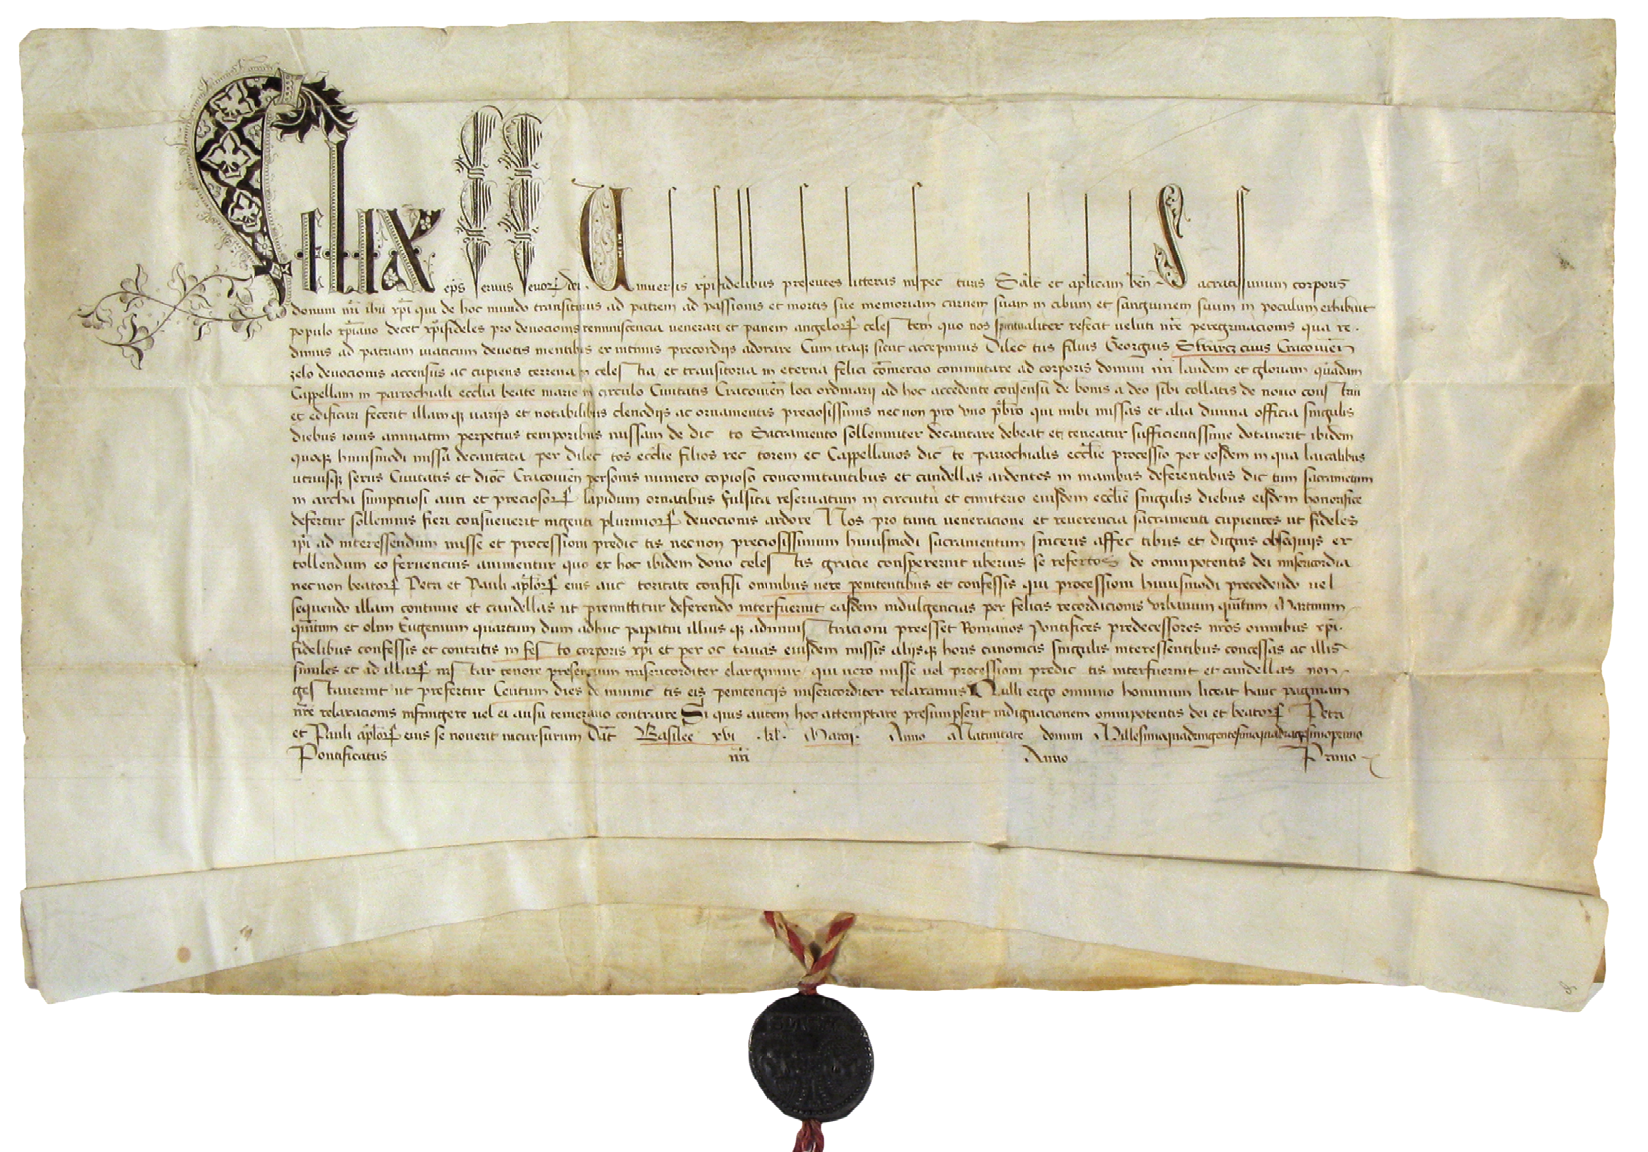 Felix ep̄s seruus seruorꝝ dei Uniuersis xp̄ifidelibus presentes litteras inspecturis Salt̄ et aplicam ben̄ Sacratissimum corporis
domini nr̄i ihū xp̄i qui de hoc mundo transiturus ad patrem ad passionis et mortis sue memoriam carnem suam in cibum et sanguinem suum in poculum exhibuit
populo xp̄iano decet xp̄ifideles pro deuocionis reminiscencia uenerari et panem angelorꝝ celestem quo nos spiritualiter refecit veluti nr̄e peregrinacionis qua re-
dimus ad patriam uiaticum deuotis mentibus ex intimis precordijs adorare Cum itaqꝫ sicut accepimus Dilectus filius Georgius Swarcz ciuis Cracouien̄
zelo deuocionis accensus ac cupiens terrena in celestia et transitoria in eterna felici cōmercio commutare ad corporis domini nr̄i laudem et gloriam quādam
Cappellam in parrochiali ecclia beate marie in circulo Ciuitatis Cracouien̄ loci ordinarij ad hoc accedente consensu de bonis a deo sibi collatis de nouo construi
et edificari fecerit illamqꝫ varijs et notabilibus clenodijs ac ornamentis preciosissimis necnon pro vno prb̄ro qui inibi missas et alia diuina officia singulis
diebus iouis annuatim perpetuis temporibus missam de dicto Sacramento sollemniter decantare debeat et teneatur sufficientissime dotauerit ibidem
quoqꝫ huiusmodi missa decantata per dilectos ecclie filios rectorem et Cappellanos dicte parrochialis ecclie processio per eosdem in qua laicalibus
utriusqꝫ sexus Ciuitatis et dioc̄ Cracouien̄ personis numero copioso concomitantibus et candellas ardentes in manibus deferentibus dictum sacramentum
in archa sumptuosi auri et preciosorꝝ lapidum ornatibus fulsita reseruatum in circuitu et cimiterio eiusdem ecclie singulis diebus eisdem honorifice
defertur sollemnis fieri consueuerit ingenti plurimorꝝ deuocionis ardore Nos pro tanti ueneracione et reuerencia sacramenti cupientes ut fideles
ip̄i ad interessendum misse et processioni predictis necnon preciosissimum huiusmodi sacramentum sinceris affectibus et dignis obsequijs ex
tollendum eo feruencius animentur quo ex hoc ibidem dono celestis gracie conspexerint uberius se refertos de omnipotentis dei misericordia
necnon beatorꝝ Petri et Pauli aplorꝝ eius auctoritate confisi omnibus uere penitentibus et confessis qui processioni huiusmodi precedendo uel
sequendo illam continue et candellas ut premittitur deferendo interfuerint easdem indulgencias per felicis recordacionis Vrbanum quītum Martinum
quītum et olim Eugenium quartum dum adhuc papatui illiusqꝫ administracioni preesset Romanos Pontifices predecessores nr̄os omnibus xp̄i-
fidelibus confessis et contritis in festo corporis xp̄i et per octauas eiusdem missis alijsqꝫ horis canonicis singulis interessentibus concessas ac illis
similes et ad illarꝝ instar tenore presencium misericorditer elargimur, qui uero misse vel processioni predictis interfuerint et candellas non
gestauerint ut prefertur Centum dies de iniunctis eis penitencijs misericorditer relaxamus Nulli ergo omnino hominum liceat hanc paginam
nr̄e relaxacionis infringere uel ei ausu temerario contraire Si quis autem hoc attemptare presumpserit indignacionem omnipotentis dei et beatorꝝ Petri
et Pauli aplorꝝ eius se nouerit incursurum Dat̄ Basilee xvi kl̄ Marcij Anno a Natiuitate domini Millesimoquadringentesimoquadragesimoprimo
Pontificatus nr̄i Anno Primo